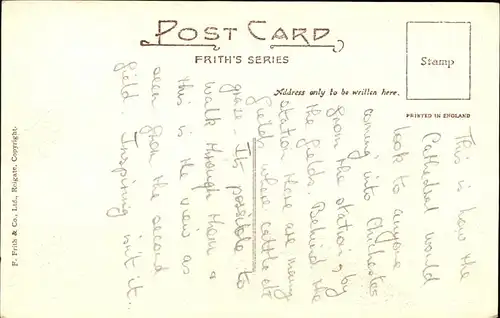 POST CARD
FRITH'S SERIES
Address only to be written here.
Stamp
PRINTED IN ENGLAND
F. Frith & Co., Ltd., Reigate. Copyright.
This is how the
Cathedral would
look to anyone
coming into Chichester
from the station, by
the fields. Behind the
station there are many
fields where cattle do
graze - Its possible to
walk through them &
this is the view as
seen from the second
field. Inspiring isn't it..